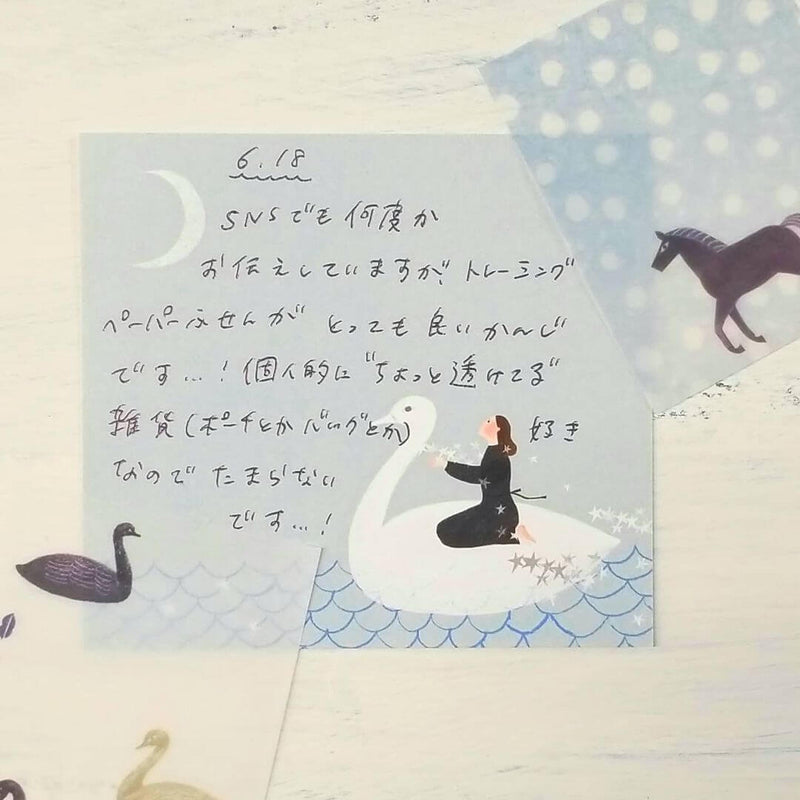 6.18
SNSでも何度か
お伝えしていますが、トレーシング
ペーパーふせんが とっても良いかんじ
です…！個人的に"ちょっと透けてる"
雑貨(ポーチとかバッグとか)好き
なのでたまらない
です…！